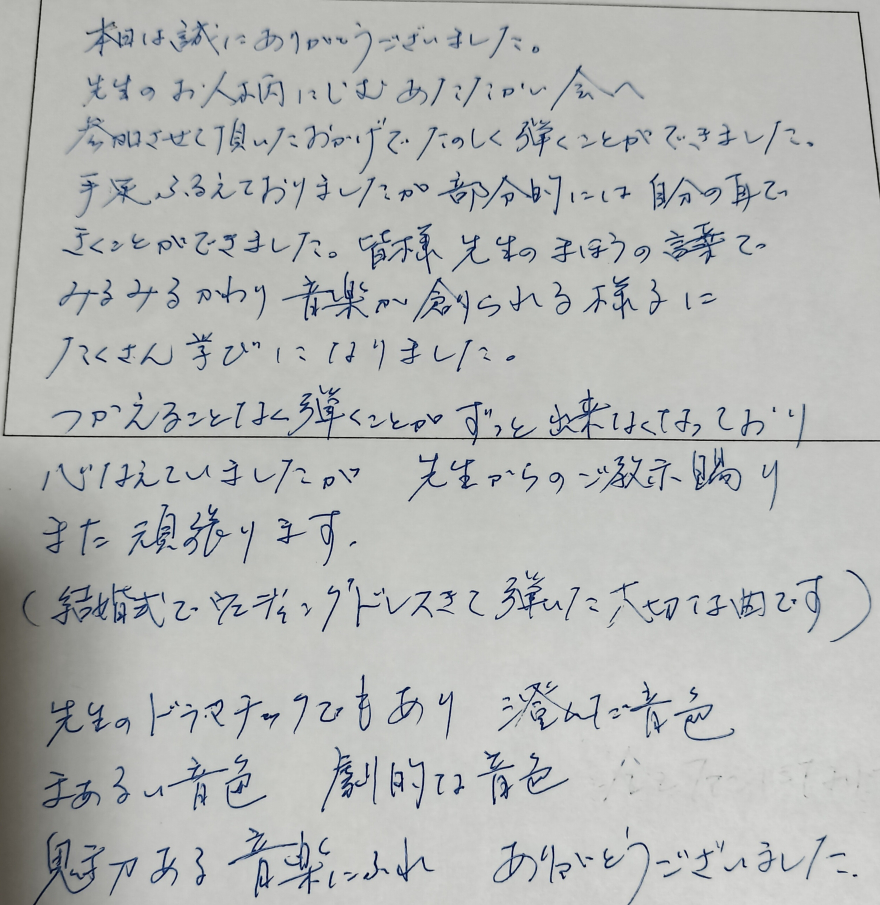 本日は誠にありがとうございました。
先生のお人柄にじむあたたかい会へ
参加させて頂いたおかげでたのしく弾くことができました。
手足ふるえておりましたが部分的には自分の耳で
きくことができました。皆様 先生のまほうの言葉で
みるみるかわり音楽が創られる様子に
たくさん学びになりました。
つかえることなく弾くことがずっと出来なくなっており
心はえていましたが 先生からのご教示賜り
また頑張ります.
(結婚式でウェディングドレスきて弾いた大切な曲です)
先生のドラマチックでもあり 澄んだ音色
まあるい音色 劇的な音色
魅力ある音楽にふれ ありがとうございました.